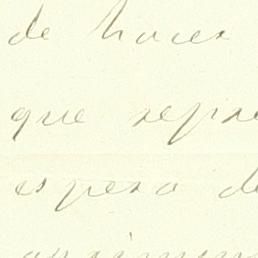 de hacer
que repre
espero de